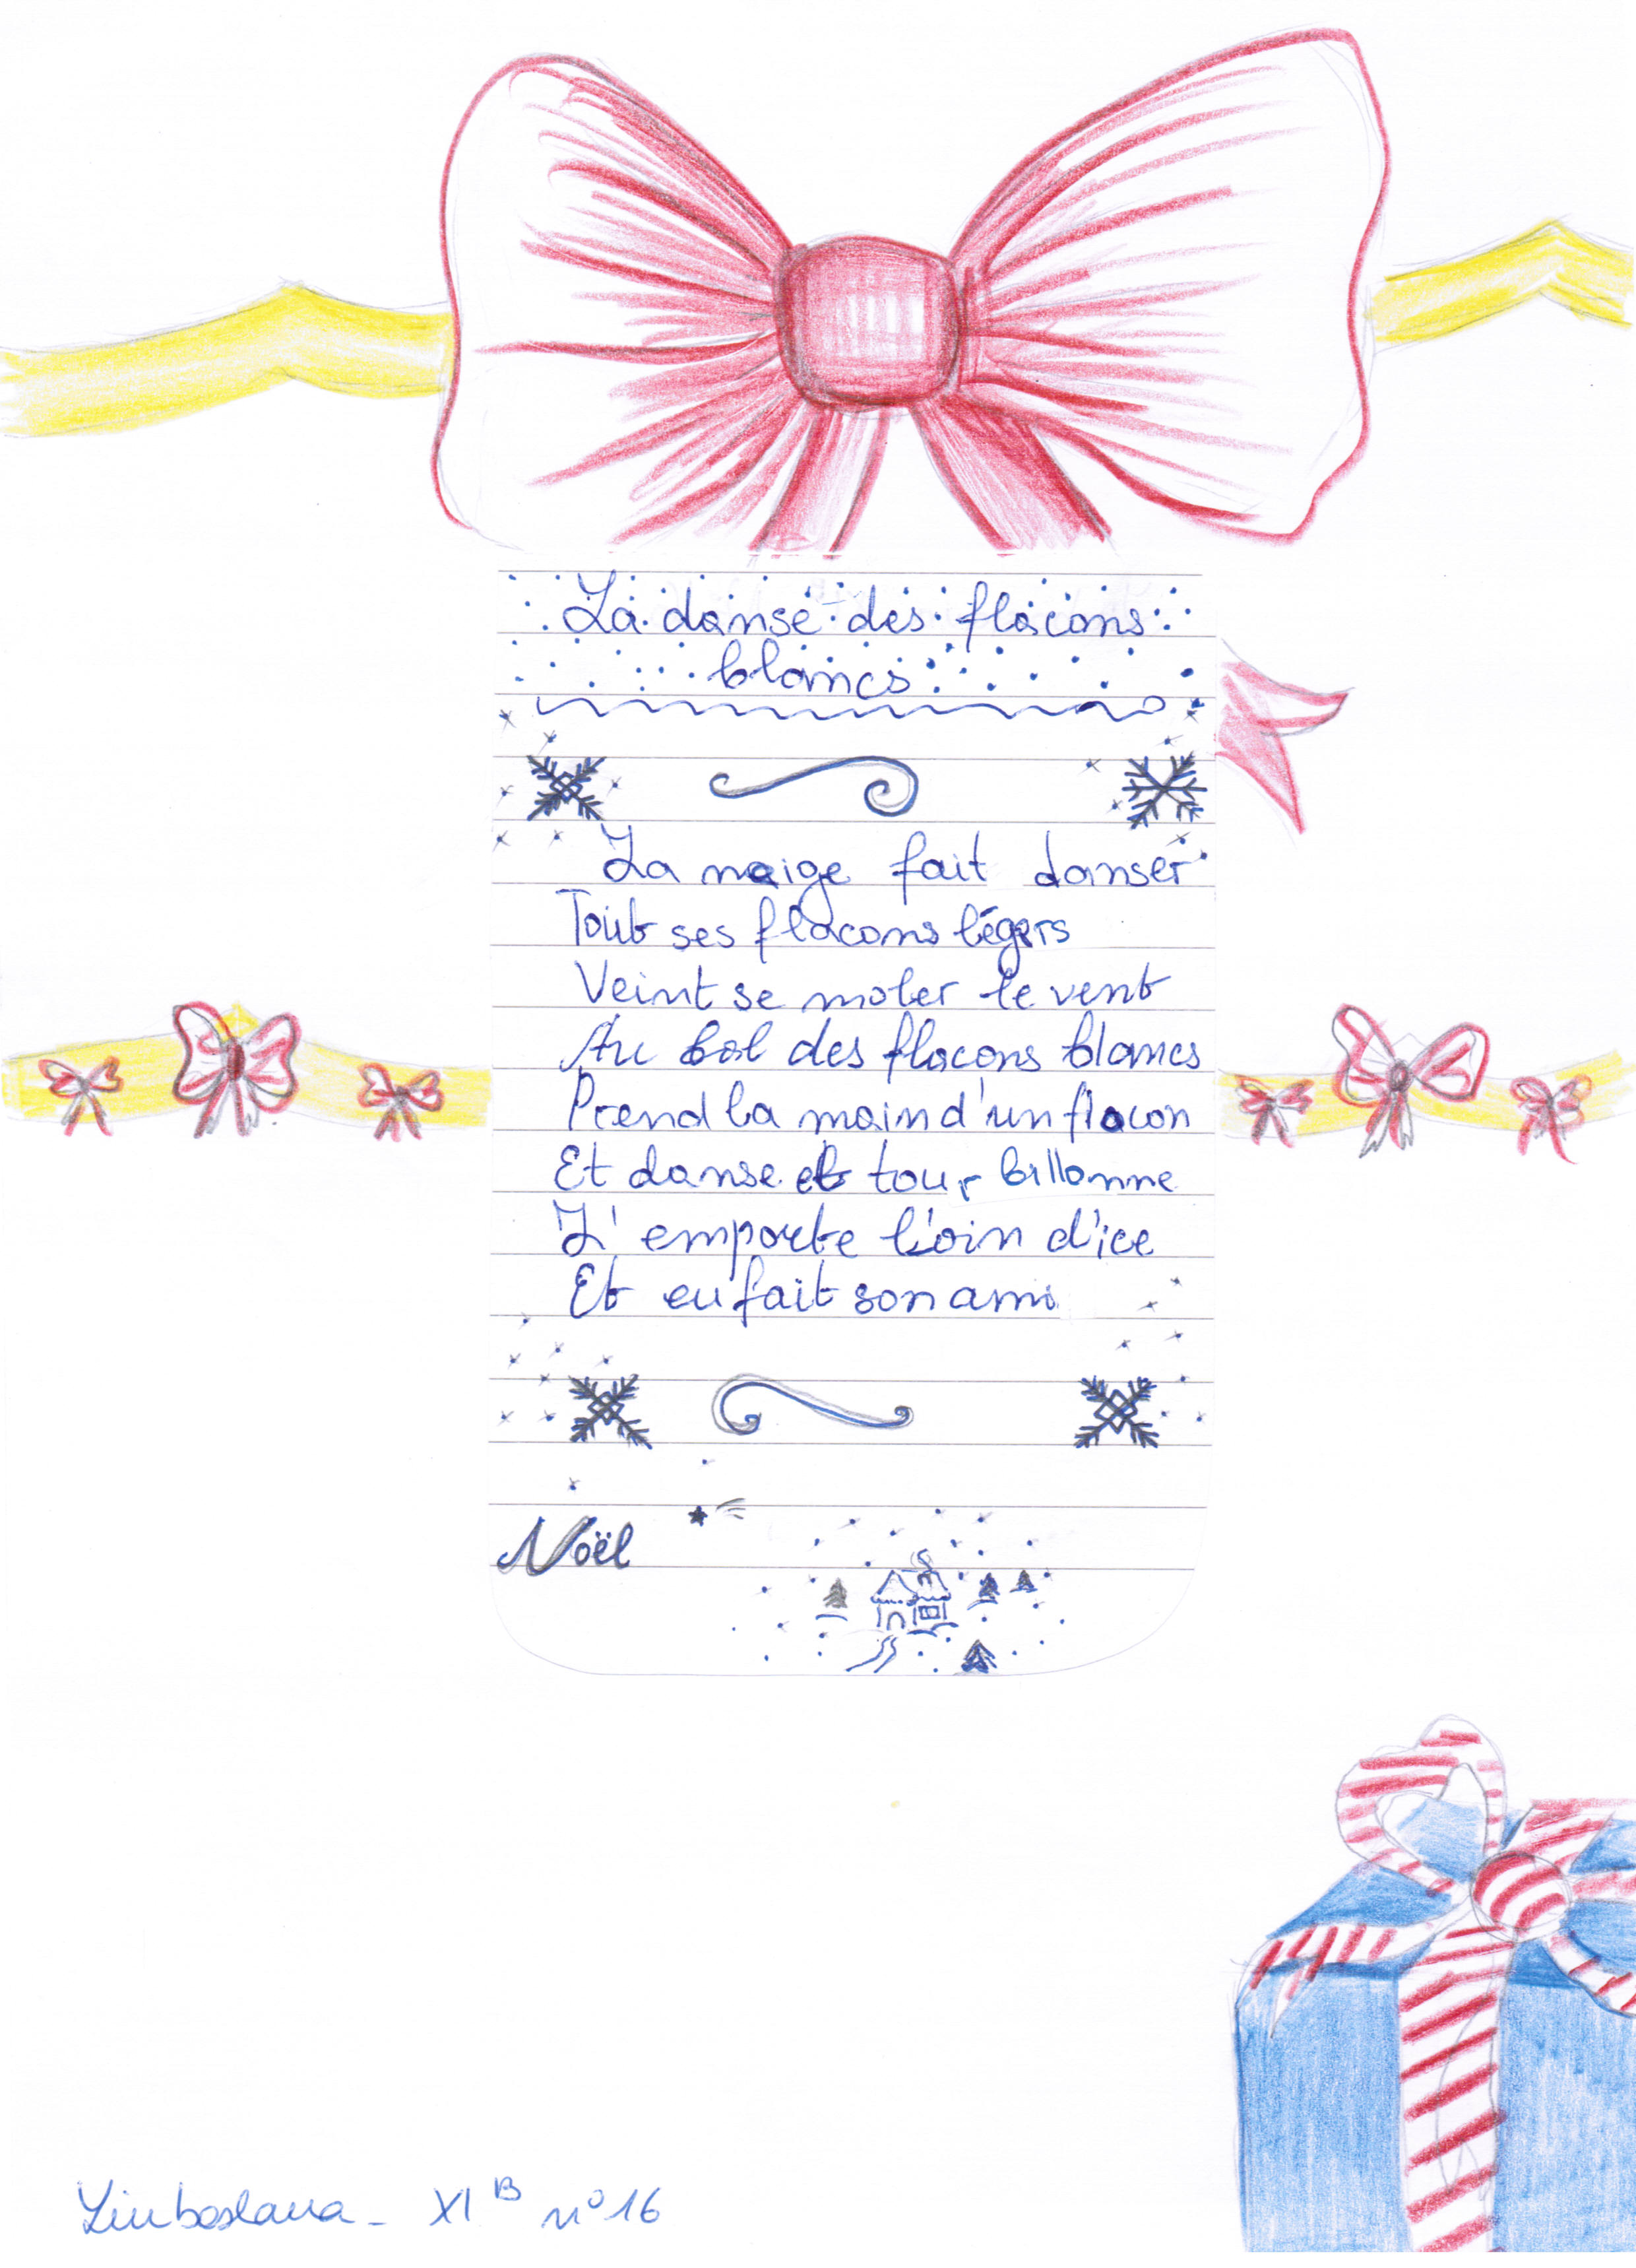 La danse des flacons
blancs
La naige fait danser
Tout ses flacons légers
Veint se moler le vent
Au bal des flacons blancs
Prend la main d'un flacon
Et danse et tour billonne
L' emporte l'oin d'ice
Et eu fait son ami
Noël
XI B nº 16